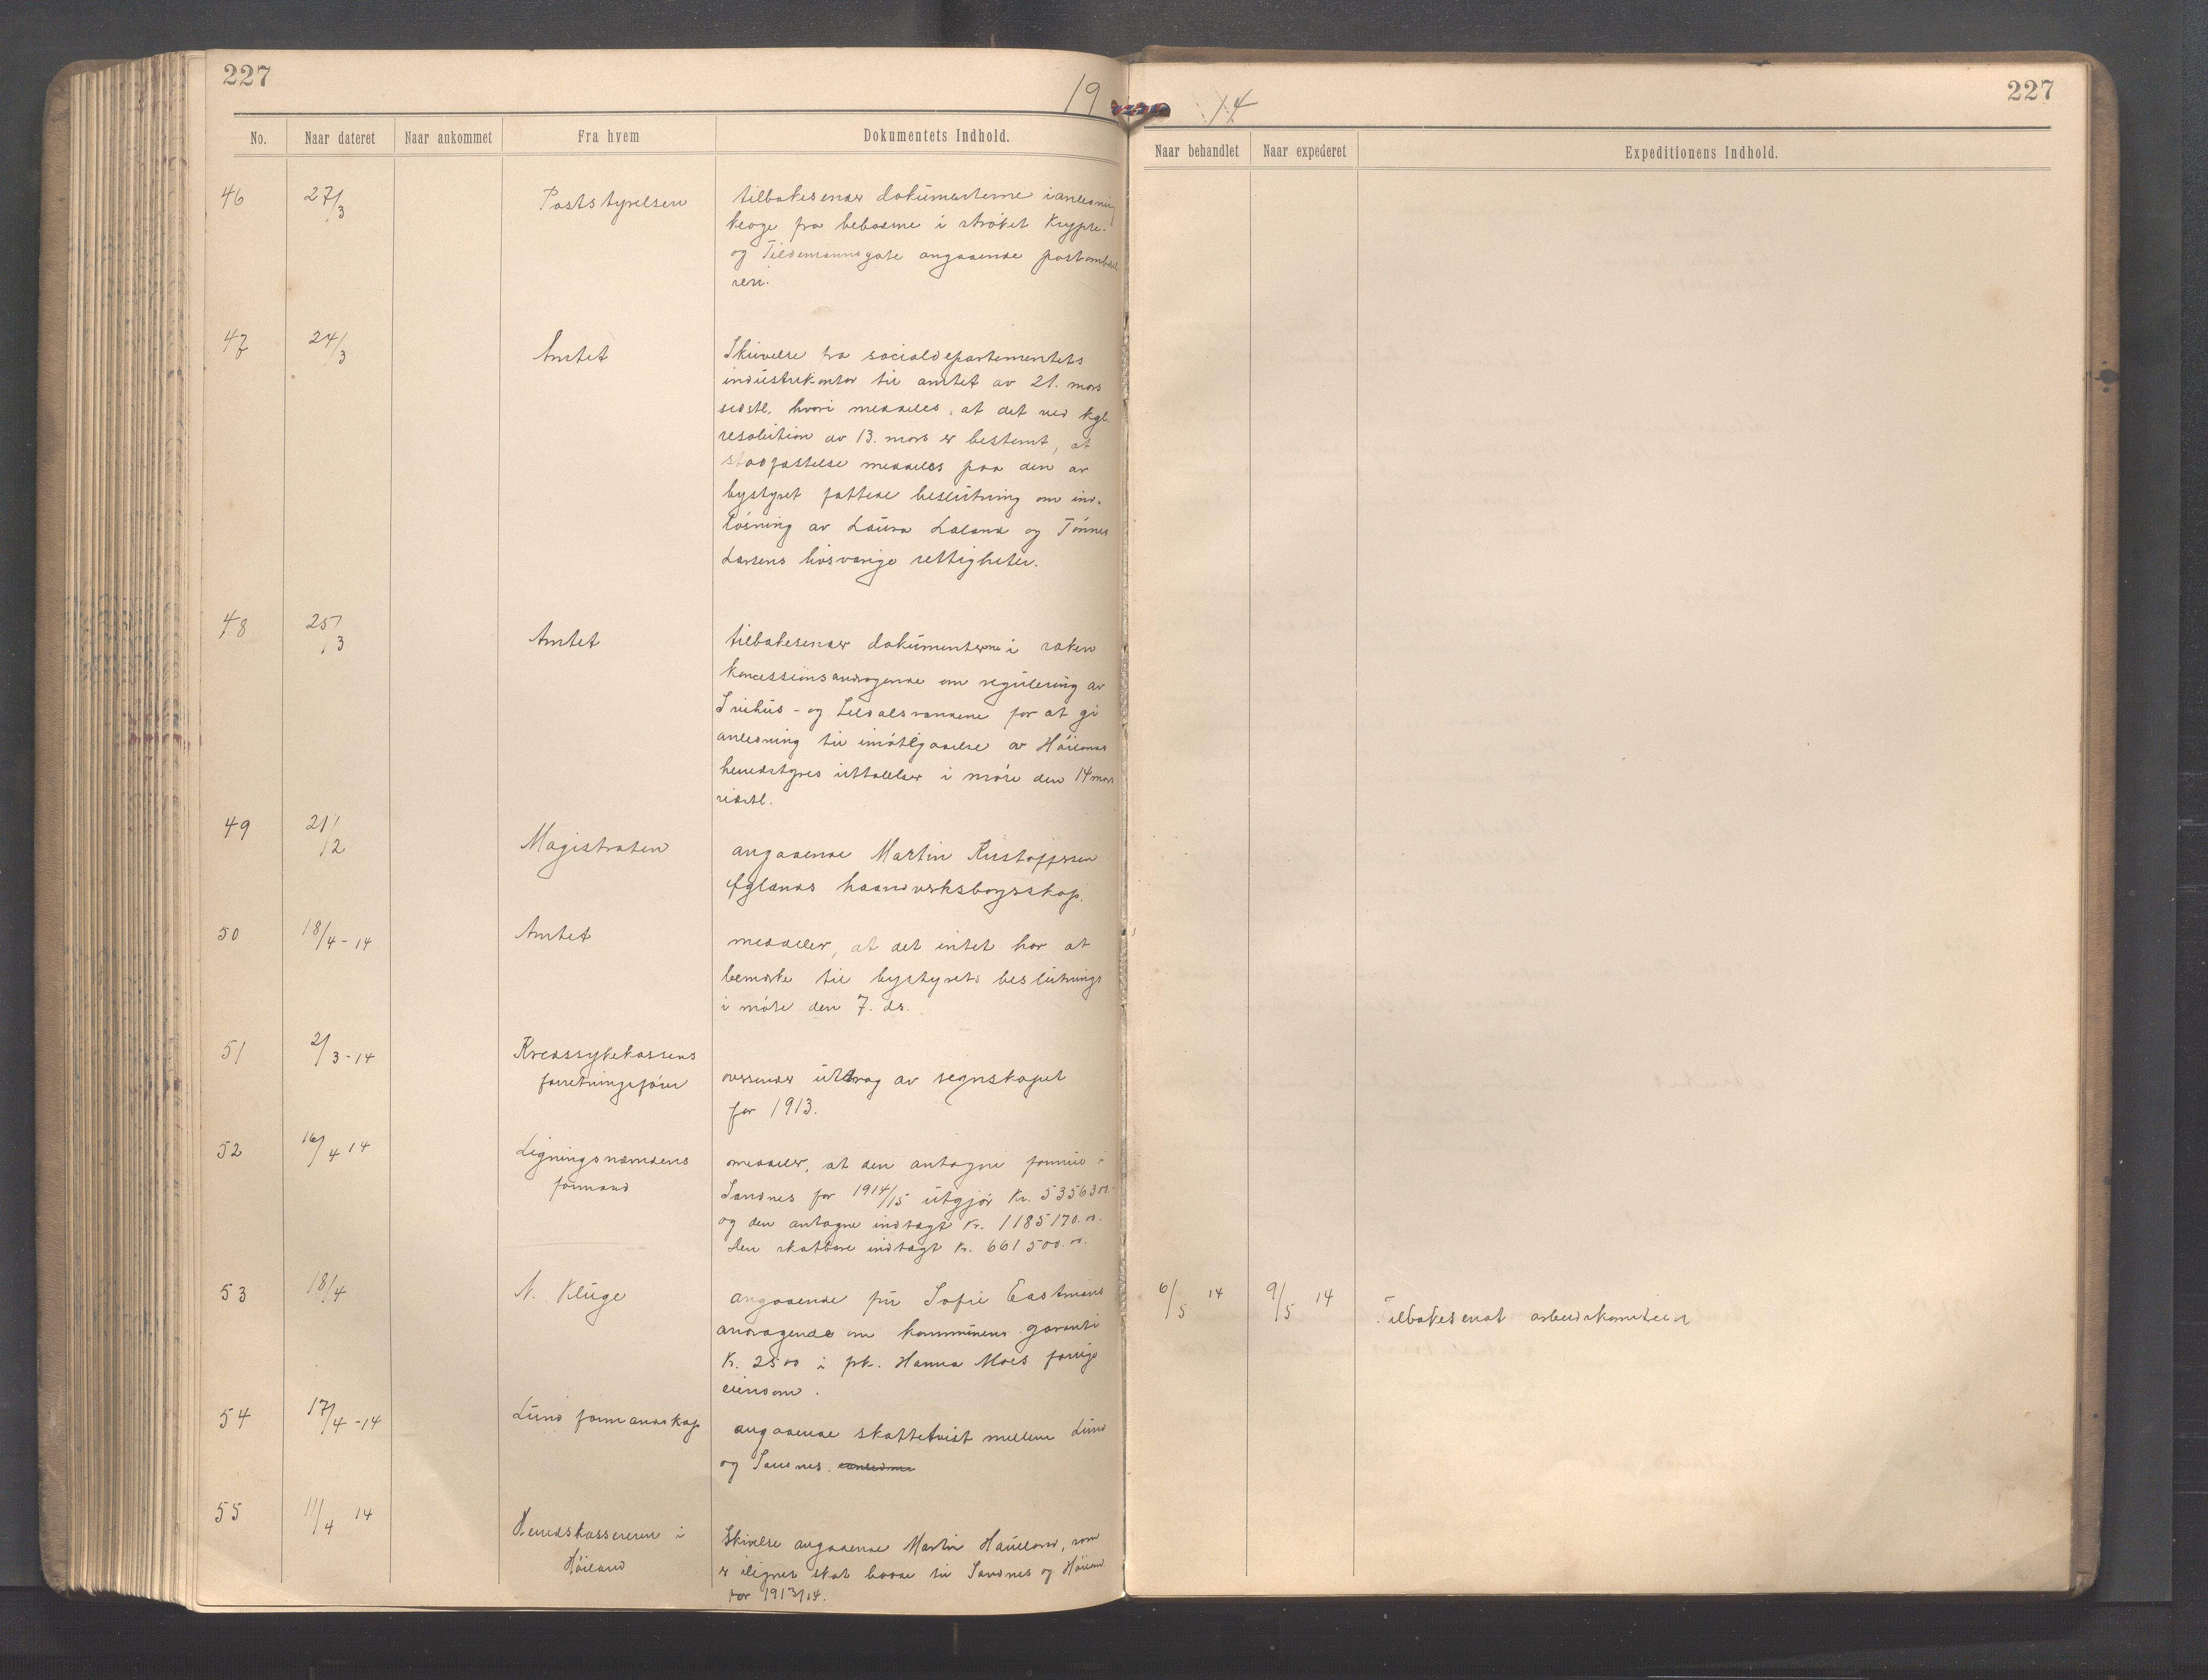 227
19
14
227
No.
Naar dateret
Naar ankommet
Fra hvem
Dokumentets Indhold.
Naar behandlet
Naar expederet
Expeditionens Indhold.
46
27/3
Poststyrelsen
tilbakesender dokumenterne i anledning
klage fra beboerne i strøket
og Tidemannsgate angaaende postombæ
reri.
47
24/3
Amtet
Skrivelse fra socialdepartementets
industrikontor til amtet av 21. mars
sidstl. hvori meddeles, at det ved kgl.
resolution av 13. mars er bestemt, at
stadfæstelse meddeles paa den av
bystyret fattede beslutning om ind-
løsning av Laura Laland og Tønnes
Larsens livsvarige rettigheter.
48
25/3
Amtet
tilbakesender dokumenterne i saken
koncessionsandragende om regulering av
Svihus- og Seldalsvandene for at gi
anledning til imøtegaaelse av Høilands
herredstyres uttalelser i møte den 14 mars
sidstl.
49
21/2
Magistraten
angaaende Martin Kristoffersen
Øglænds haandverksborgerskap.
50
18/4-14
Amtet
meddeler, at det intet har at
bemerke til bystyrets beslutninger
i møte den 7. ds.
51
2/3-14
Kredssykekassens
forretningsfører
oversender utdrag av regnskapet
for 1913.
52
16/4 14
Ligningsnævndens
formand
meddeler, at den antagne formue i
Sandnes for 1914/15 utgjør Kr. 5356300.-
og den antagne indtægt Kr. 1185170.00.
den skatbare indtægt Kr. 661500.00.
53
18/4
N. Kluge
angaaende fru Sofie Eastmans
andragende om kommunens garanti
Kr. 2500 i frk. Hanna Moes forrige
eiendom.
6/5 14
9/5 14
Tilbakesendt arbeiderkomiteen
54
17/4-14
Lund formandskap
angaaende skattetvist mellem Lund
og Sandnes.
55
11/4 14
Herredskassereren i
Høiland
Skrivelse angaaende Martin Haueland, som
er ilignet skat baade til Sandnes og Høiland
for 1913/14.